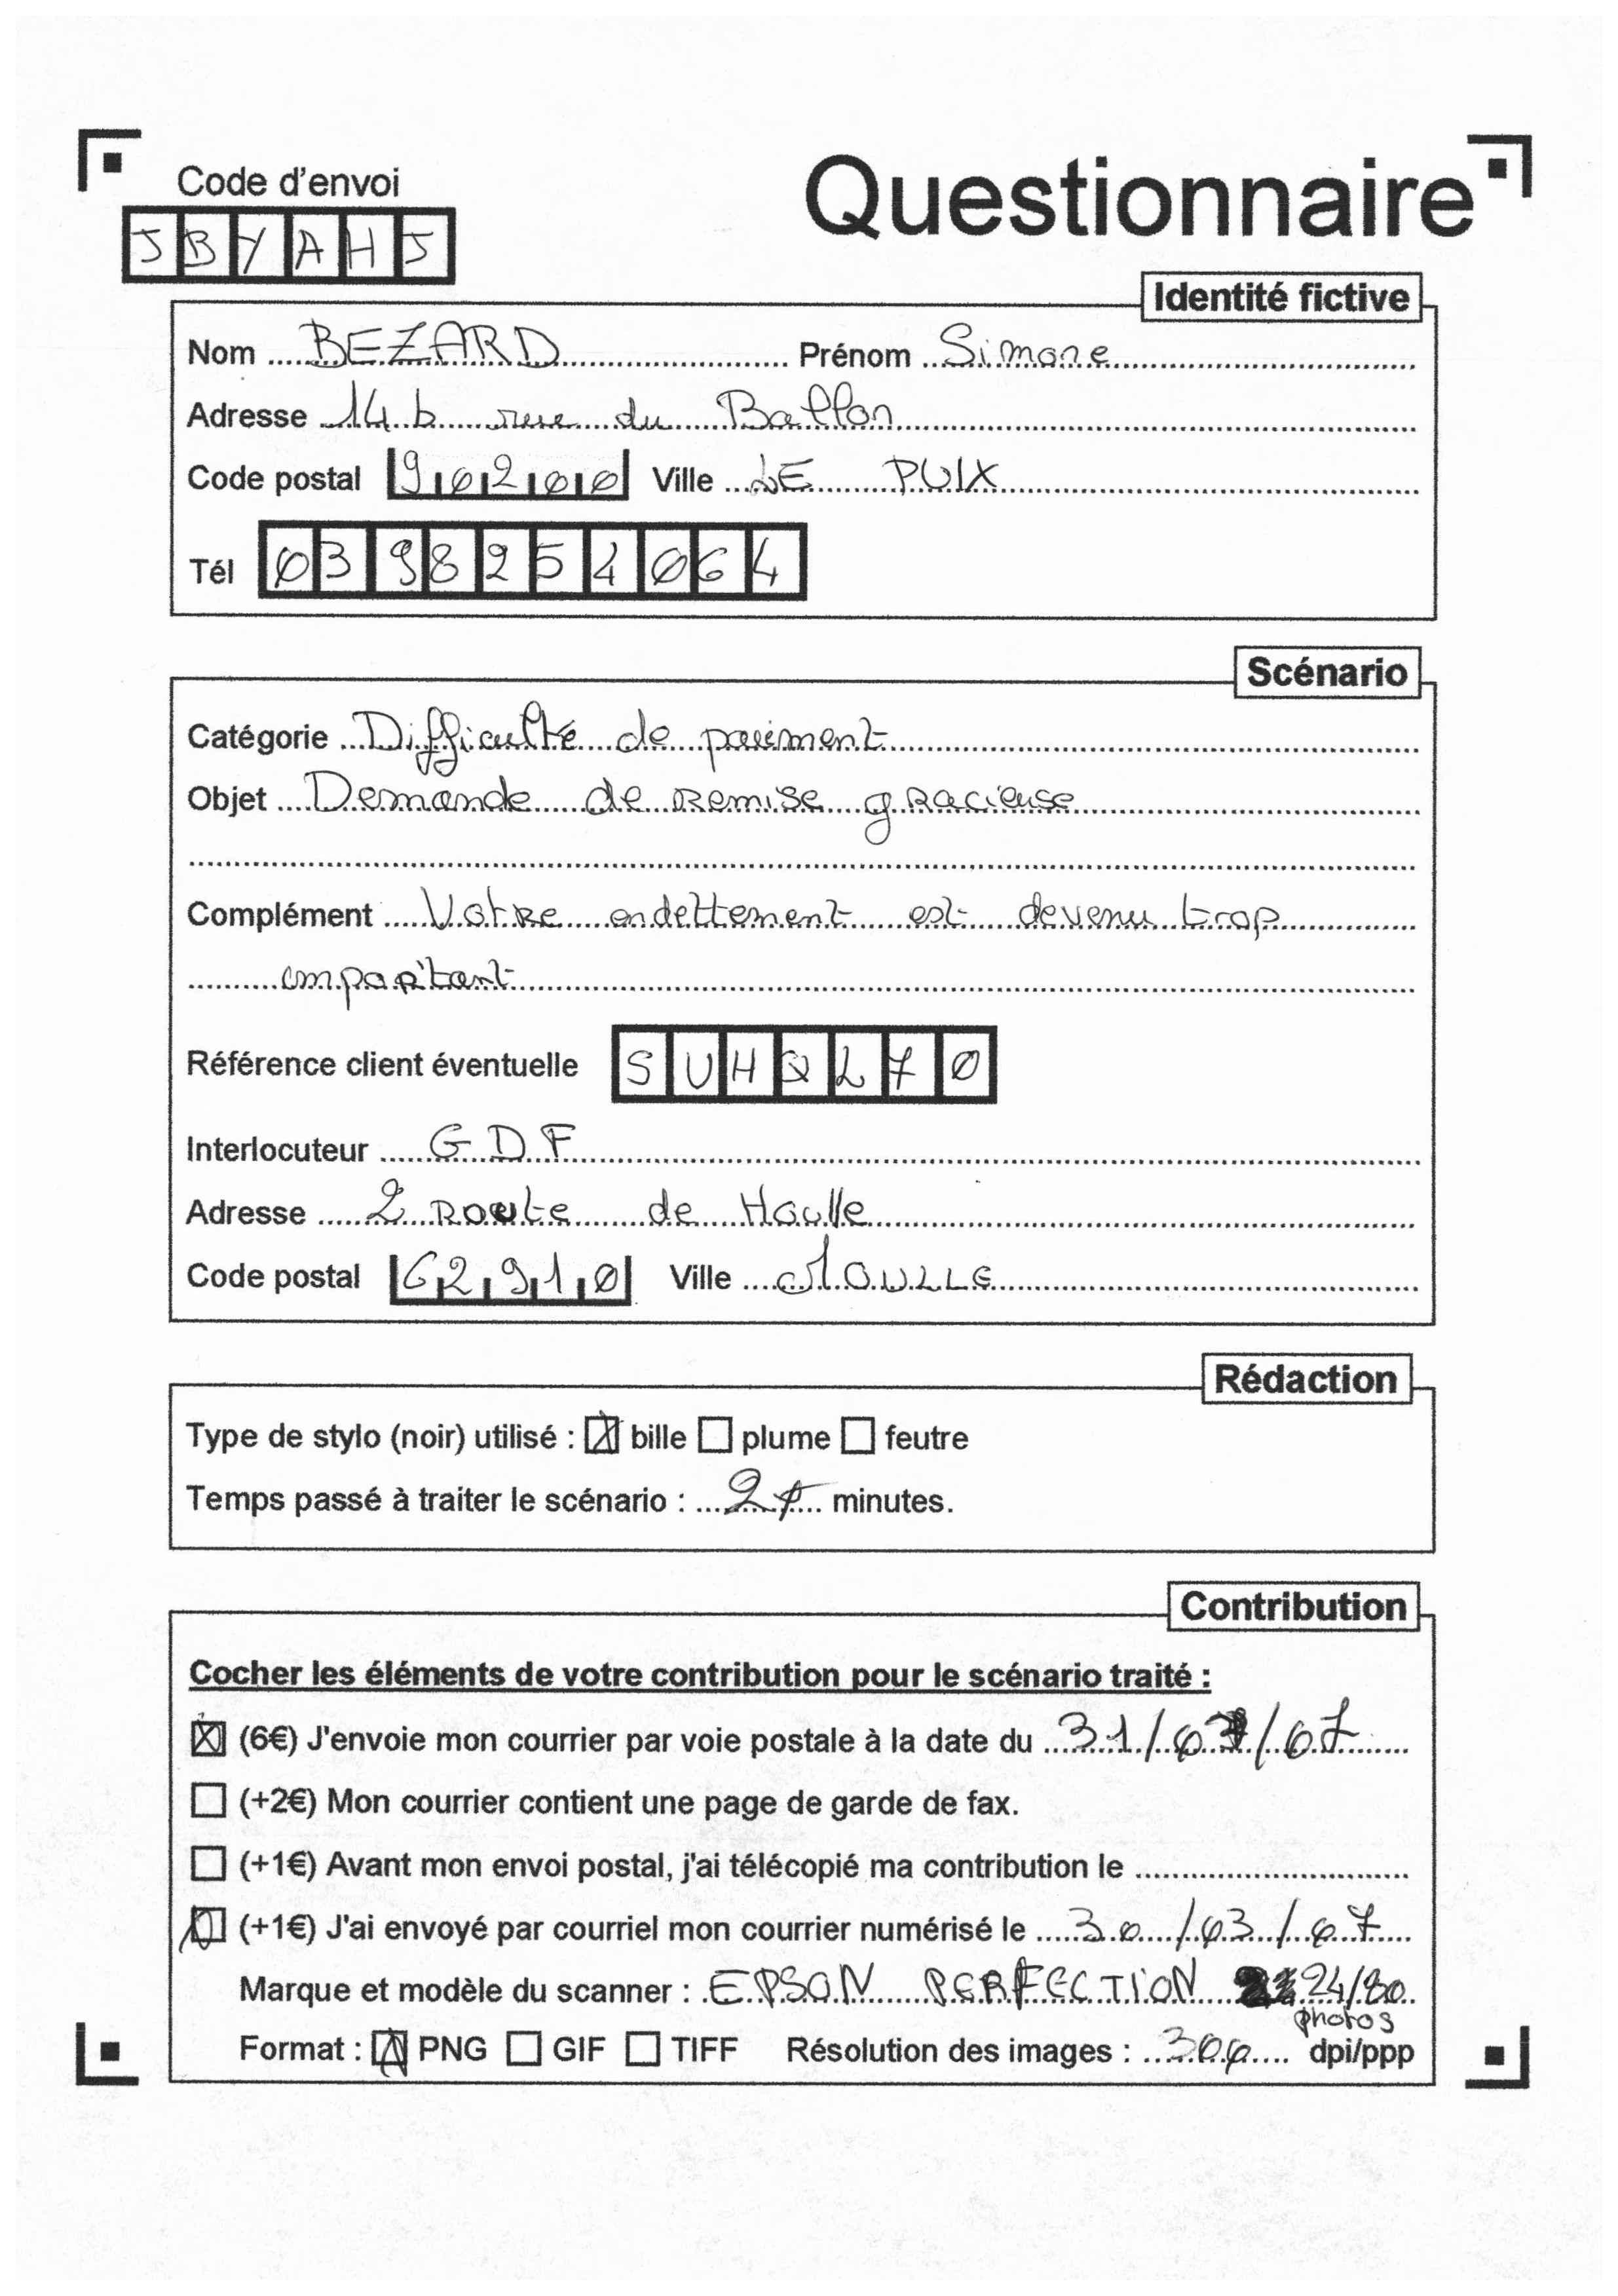 Code d'envoi
Questionnaire
JBYAHJ
Identité fictive
Nom BEZARD Prénom Simone
Adresse 14 b rue du Ballon
Code postal 90200 Ville LE PUIX
Tél 0398254064
Scénario
Catégorie Difficulté de paiement
Objet Demande de remise gracieuse
Complément Votre endettement est devenu trop
important
Référence client éventuelle SUHQL70
Interlocuteur GDF
Adresse 2 Route de Houlle
Code postal 62910 Ville MOULLE
Rédaction
Type de stylo (noir) utilisé : bille plume feutre
Temps passé à traiter le scénario : 27 minutes.
Contribution
Cocher les éléments de votre contribution pour le scénario traité :
(6€) J'envoie mon courrier par voie postale à la date du 31/03/07
(+2€) Mon courrier contient une page de garde de fax.
(+1€) Avant mon envoi postal, j'ai télécopié ma contribution le
(+1€) J'ai envoyé par courriel mon courrier numérisé le 30/03/07
Marque et modèle du scanner : EPSON PERFECTION 24/80
photos
Format : PNG GIF TIFF Résolution des images : 300 dpi/ppp